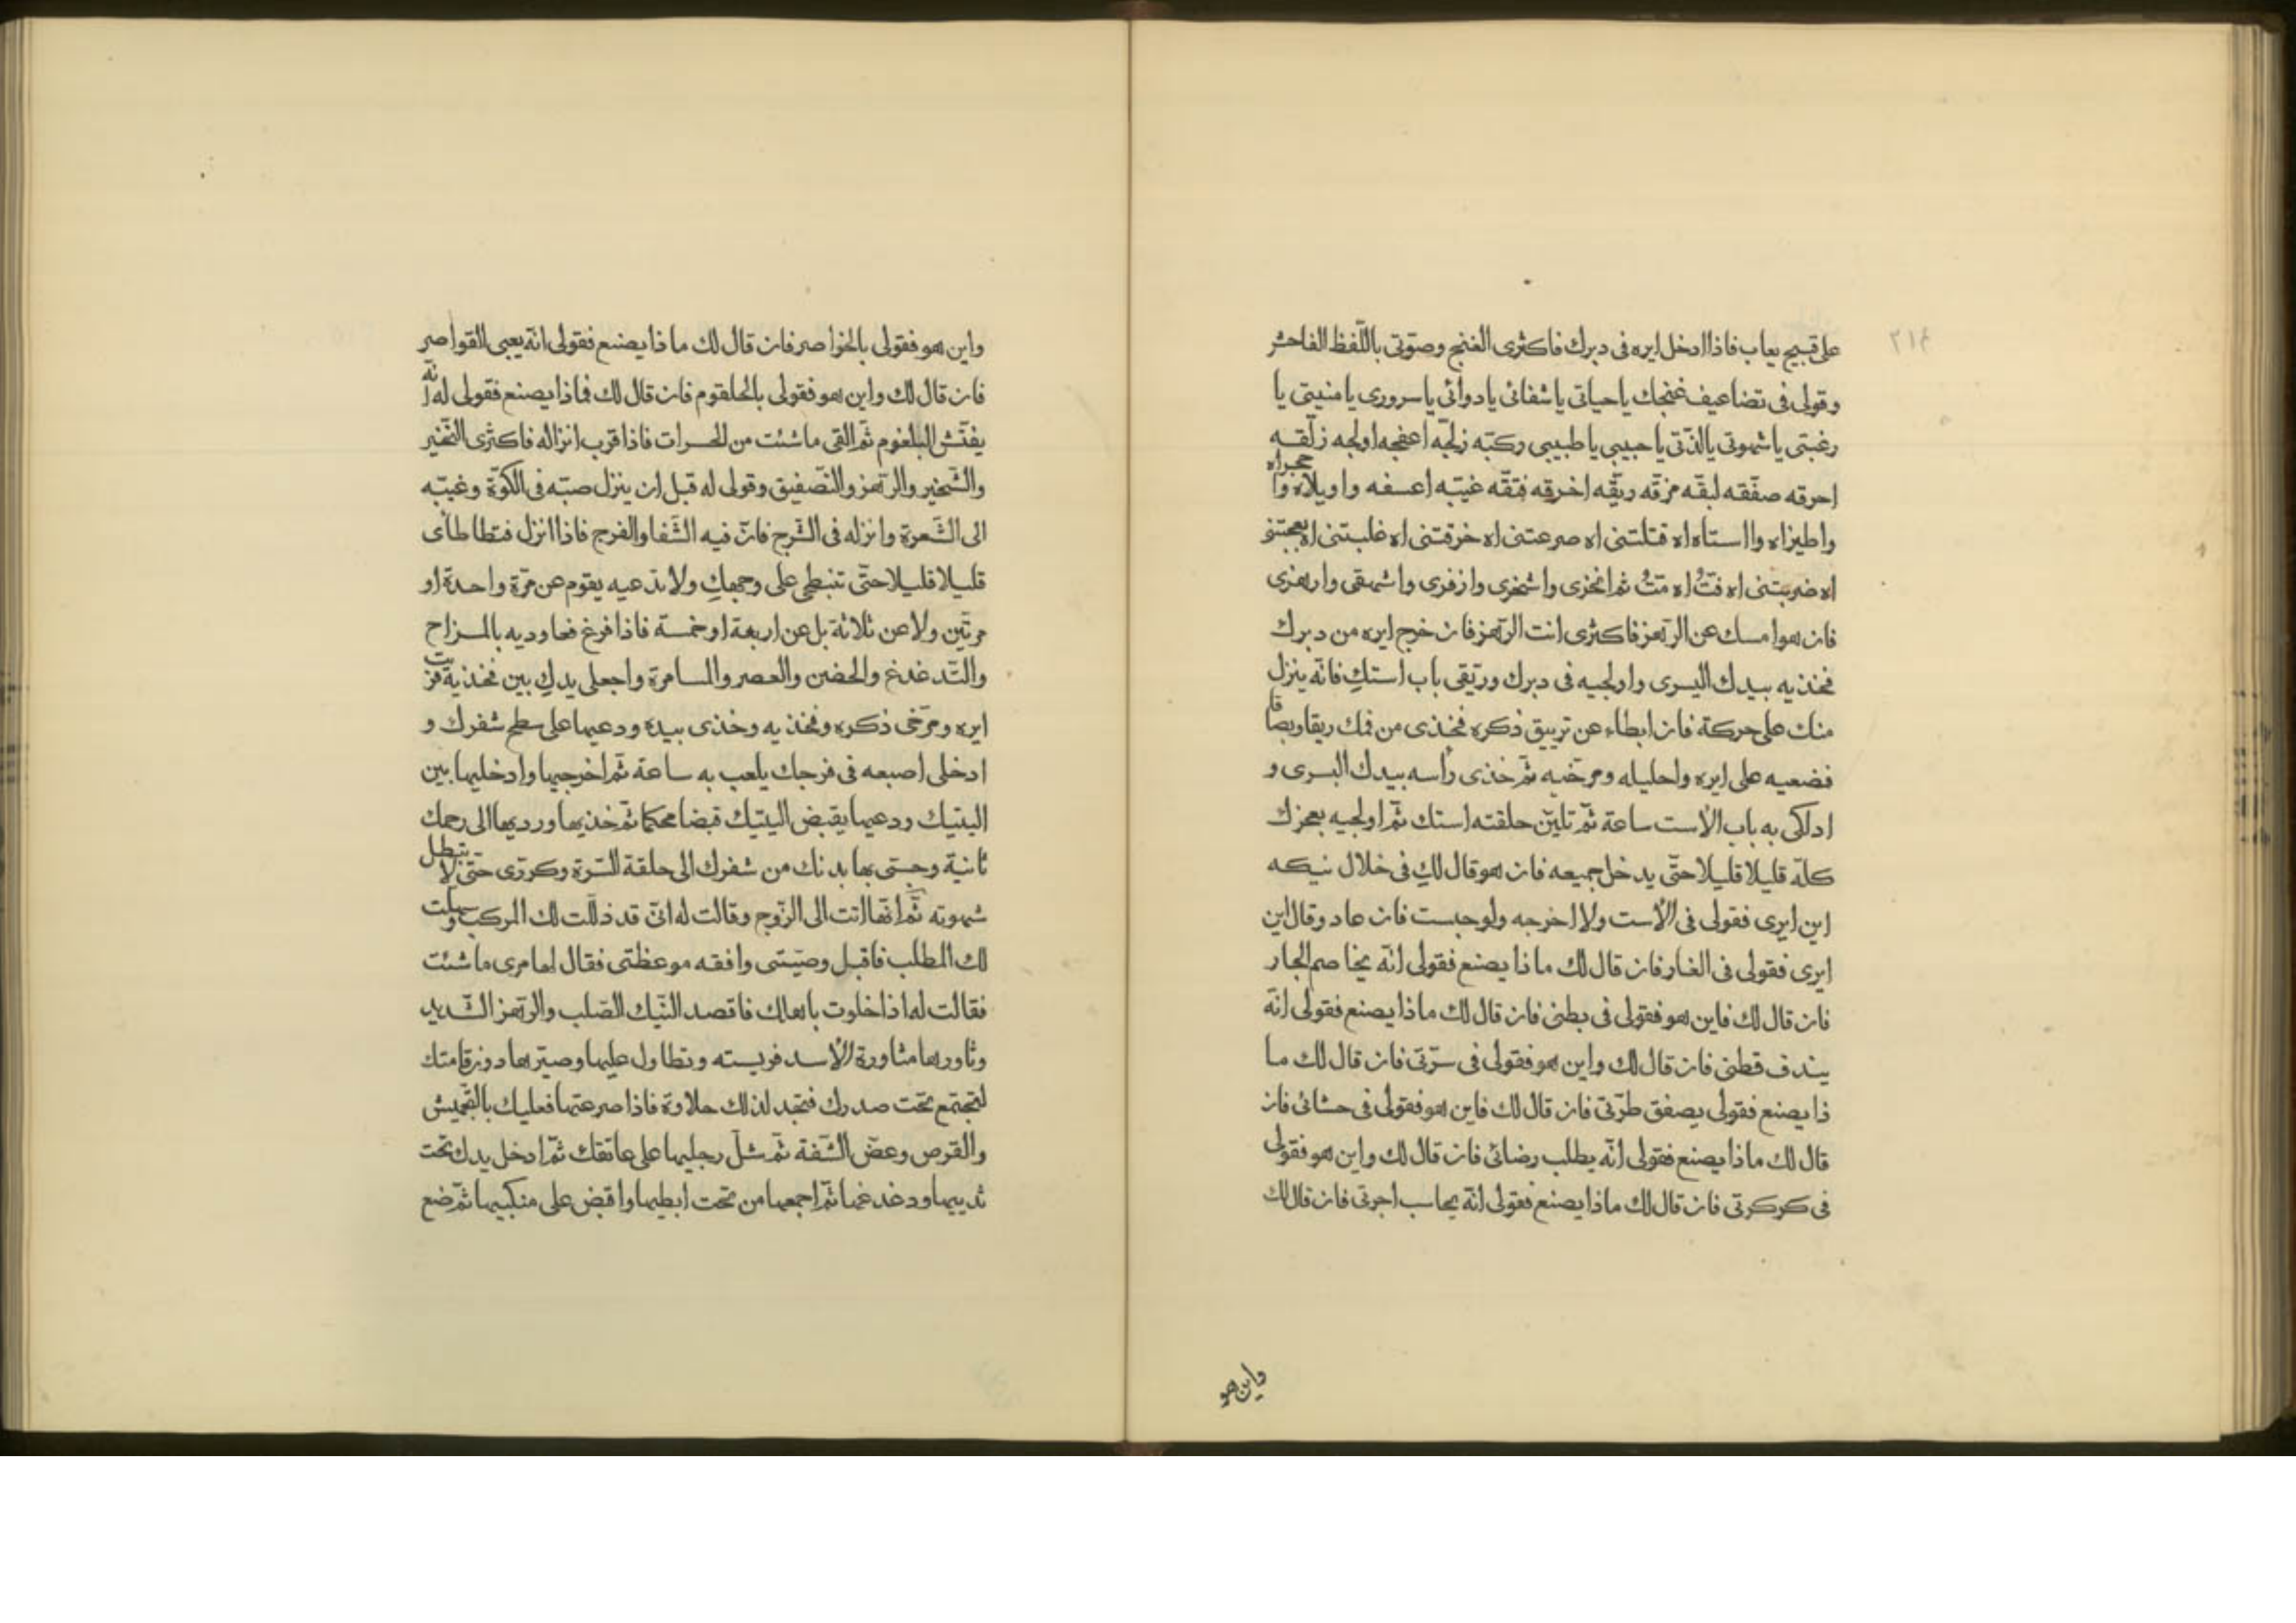 ٢١٤
على قبيح يعاب فاذا ادخل ايره فى دبرك فاكثرى الغنج وصوّتى باللّفظ الفاحش
وقولى فى تضاعيف غنجك ياحياتى ياشفائى يادوائى ياسرورى يامنيتى يا
رغبتى ياشهوتى يالذّتى ياحبيبى ياطبيبى ركبّه زلجّه اعفجه اولجه زلّقه
احرقه صفّقه لبقّه مزقّه ريقّه اخرقه فتقّه غيّبه اعسفه واويلاه وا حجراه
واطيزاه وااستاه اه قتلتنى اه صرعتنى اه خرقتنى اه غلبتنى اه بعجتنى
اه ضربتنى اه فتّ اه متّ ثم انخزى واشخرى وازفرى واشهقى وارهزى
فان هو امسك عن الرّهز فاكثرى انت الرّهز فان خرج ايره من دبرك
فخذيه بيدك اليسرى واولجيه فى دبرك وريّقى باب استكِ فانّه ينزل
منك على حركة فان ابطاء عن ترييق ذكره فخذى من فمك ريقا وبصاقا
فضعيه على ايره واحليله ومرخيه ثمّ خذى رأسه بيدك اليسرى و
ادلكى به باب الأست ساعة ثمّ تليّن حلقته استك ثمّ اولجيه بعجزك
كلّه قليلا قليلا حتّى يدخل جميعه فان هو قال لكِ فى خلال نيكه
اين ايرى فقولى فى الأست ولا اخرجه ولو حبست فان عاد وقال اين
ايرى فقولى فى الغار فان قال لك ماذا يصنع فقولى انّه يخاصم الجار
فان قال لك فاين هو فقولى فى بطنى فان قال لك ماذا يصنع فقولى انّه
يندف قطنى فان قال لك واين هو فقولى فى سرّتى فان قال لك ما
ذا يصنع فقولى يصفق طرّتى فان قال لك فاين هو فقولى فى حشائى فان
قال لك ماذا يصنع فقولى انّه يطلب رضائى فان قال لك واين هو فقولى
فى كركرتى فان قال لك ماذا يصنع فقولى انّه يحاسب اجرتى فان قال لك
واين هو
واين هو فقولى بالخواصر فان قال لك ماذا يصنع فقولى انّه يعبى القواصر
فان قال لك واين هو فقولى بالحلقوم فان قال لك فماذا يصنع فقولى له انّه
يفتّش البلغوم ثمّ القى ماشئت من الحسرات فاذا قرب انزاله فاكثرى النّخير
والشّخير والرّهز والتّصفيق وقولى له قبل ان ينزل صبّه فى الكوّة وغيّبه
الى الشّعرة وانزله فى الشّرج فانّ فيه الشّفا والفرج فاذا انزل فتطاطأى
قليلا قليلا حتّى تنبطحى على وجهكِ ولا تدعيه يقوم عن مرّة واحدة او
مرتّين ولا عن ثلاثة بل عن اربعة او خمسة فاذا فرغ فعاوديه بالمزاح
والتّدغدغ والحضن والعصر والمسامرة واجعلى يدكِ بين فخذيه
ايره ومرّخى ذكره وفخذيه وخذى بيده ودعيها على سطح شفرك و
ادخلى اصبعه فى فرجك يلعب به ساعة ثمّ اخرجيها وادخليها بين
اليتيك ودعيها يقبض اليتيك قبضا محكما ثمّ خذيها ورديها الى رحمك
ثانية وجسّى بها بدنك من شفرك الى حلقة السّرة وكررّى حتّى لا تبطل
شهوته ثمّ انّها اتت الى الزّوج وقالت له انّى قد ذلّلت لك المركب وسهلت
لك المطلب فاقبل وصيّتى وافقه موعظتى فقال لها مرى ماشئت
فقالت له اذا خلوت باهلك فاقصد النّيك الصّلب والرّهز الشّديد
وثاورها مثاورة الأسد فريسته وتطاول عليها وصيّرها دون قامتك
لتجتمع تحت صدرك فتجد لذلك حلاوة فاذا صرعتها فعليك بالتّجميش
والقرص وعضّ الشّفة ثمّ شلّ رجليها على عاتقك ثمّ ادخل يدك تحت
ثدييها ودغدغها ثمّ اجمعها من تحت ابطيها واقبض على منكبيها ثمّ ضع